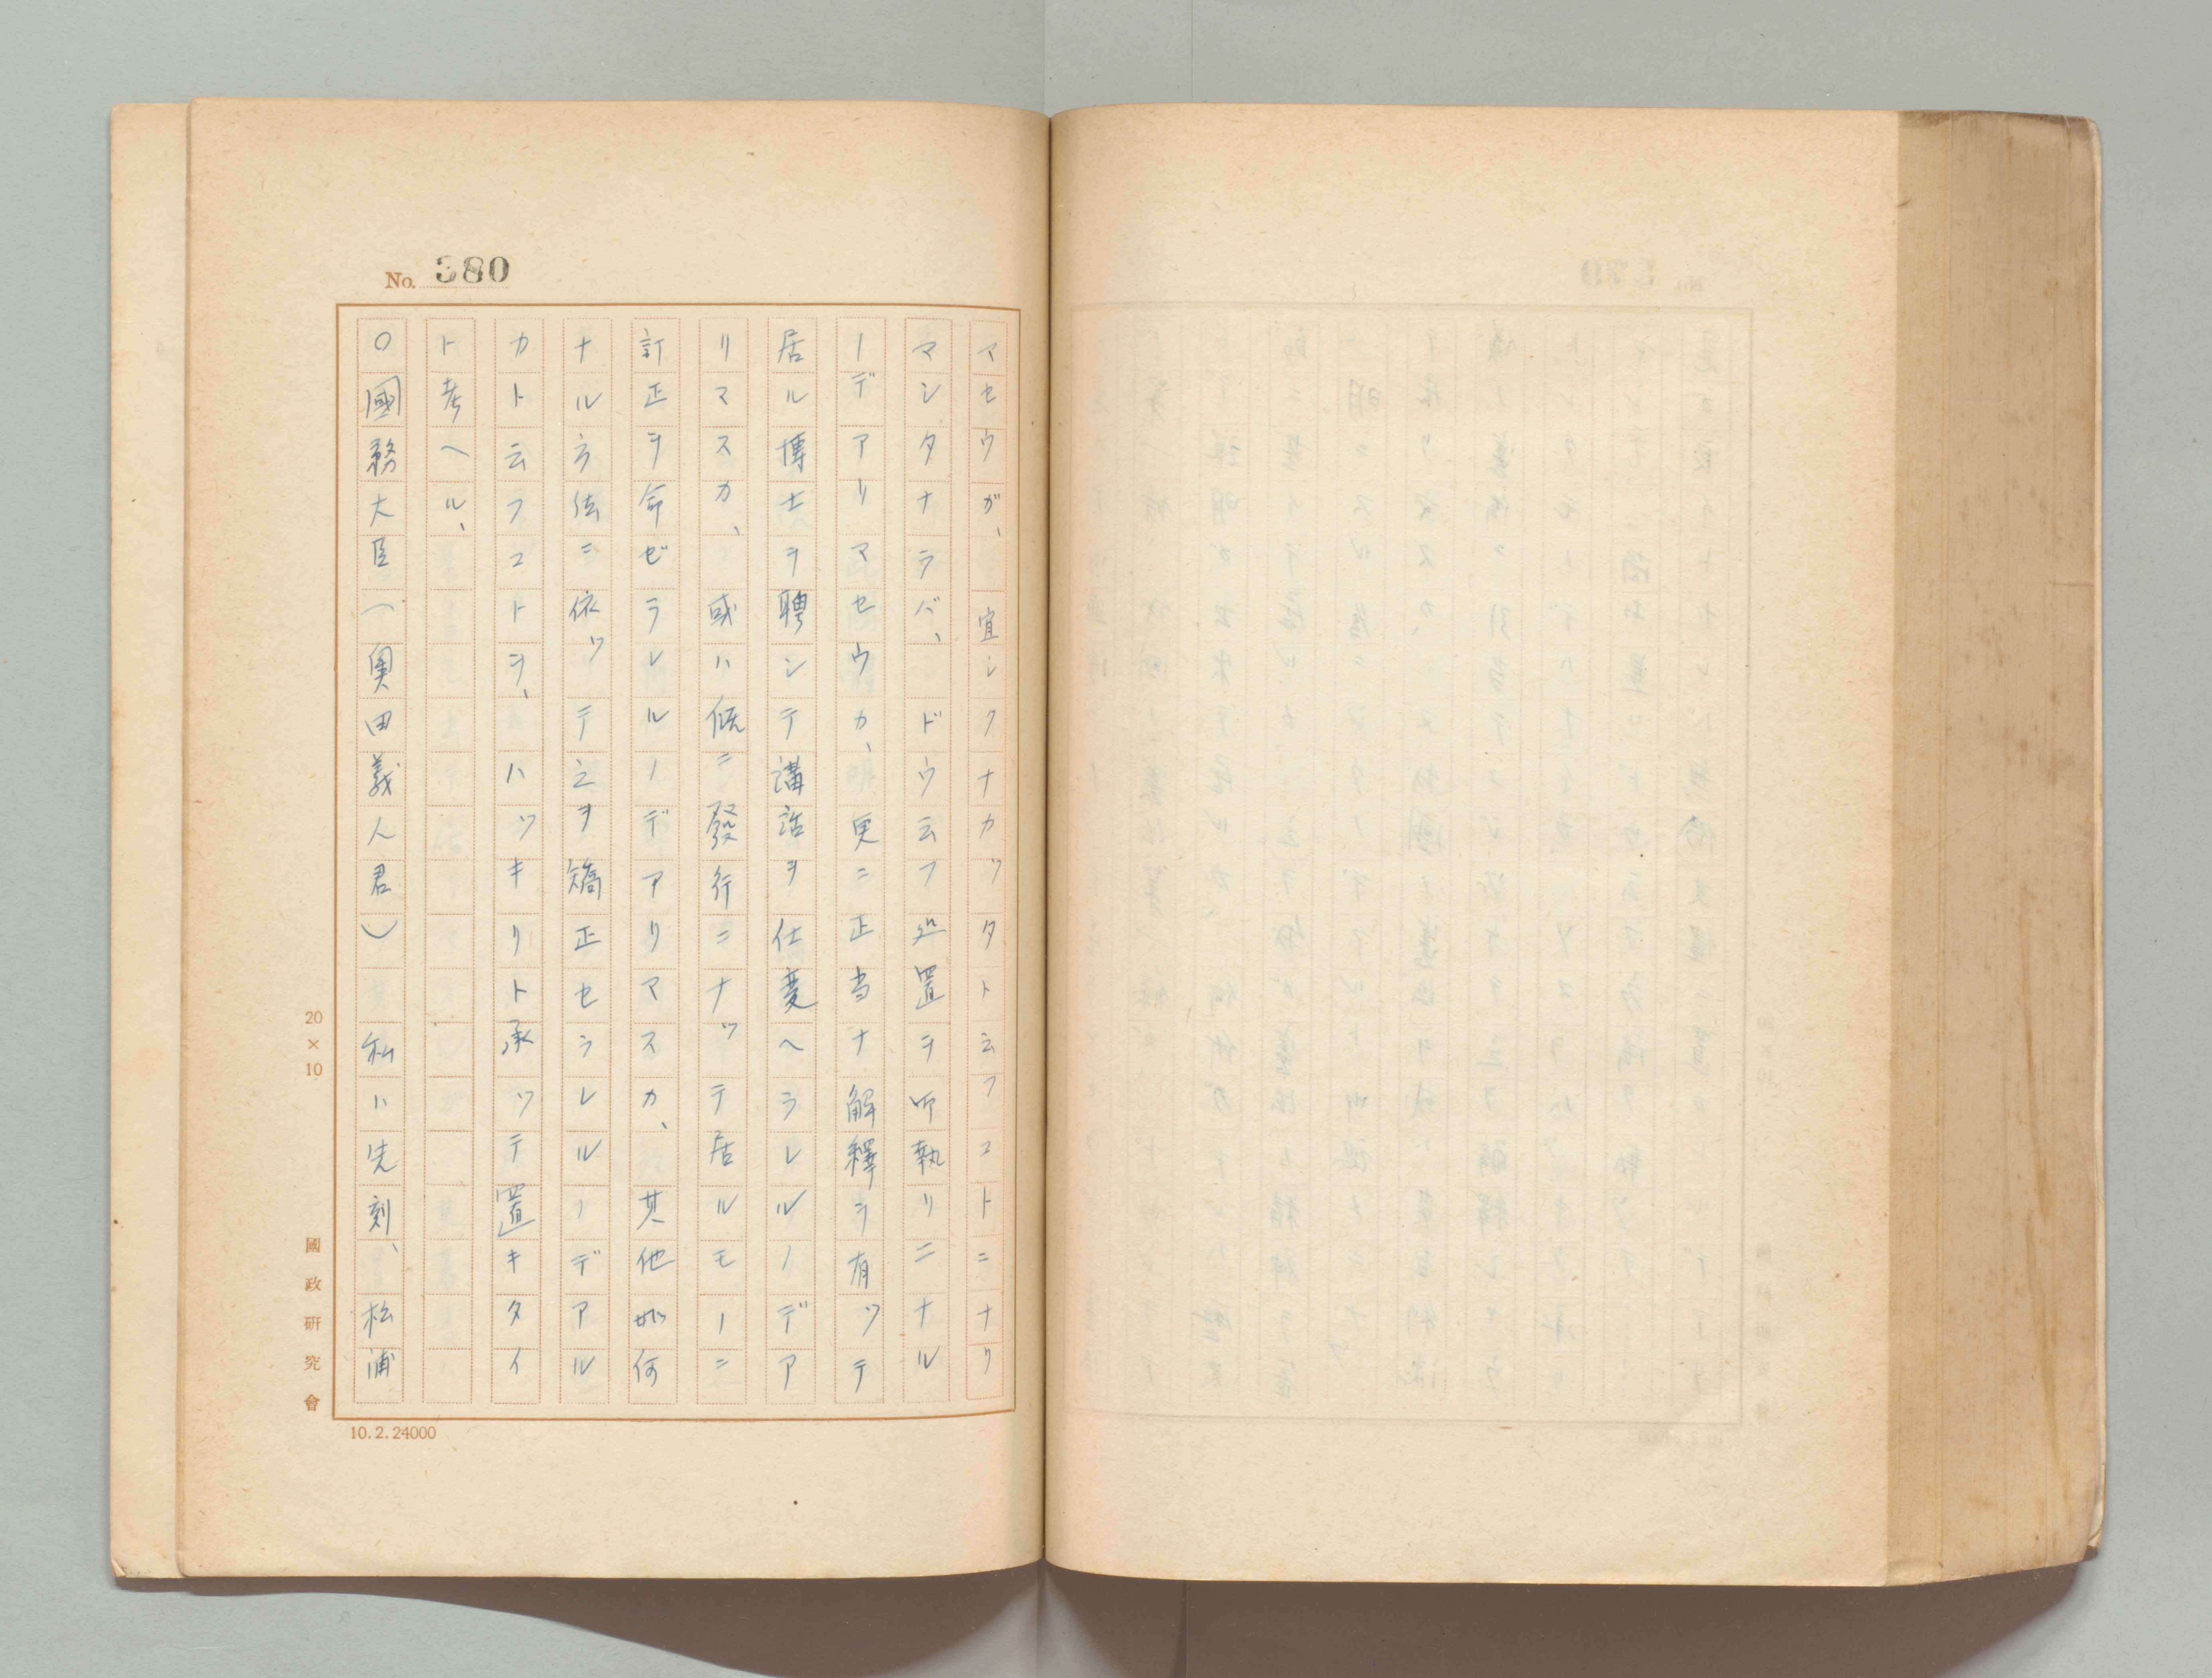 No. 380
マセウガ、宜シクナカツタト云フコトニナリ
マシタナラバ、ドウ云フ処置ヲ御執リニナル
ノデアリマセウカ、更ニ正当ナ解釋ヲ有ツテ
居ル博士ヲ聘シテ講話ヲ仕変ヘラレルノデア
リマスカ、或ハ既ニ發行ニナツテ居ルモノニ
訂正ヲ命ゼラレルノデアリマスカ、其他如何
ナル方法ニ依ツテ之ヲ矯正セラレルノデアル
カト云フコトヲ、ハツキリト承ツテ置キタイ
ト考ヘル、
〇國務大臣(奥田義人君) 私ハ先刻、松浦
20×10
國政研究會
10.2.24000